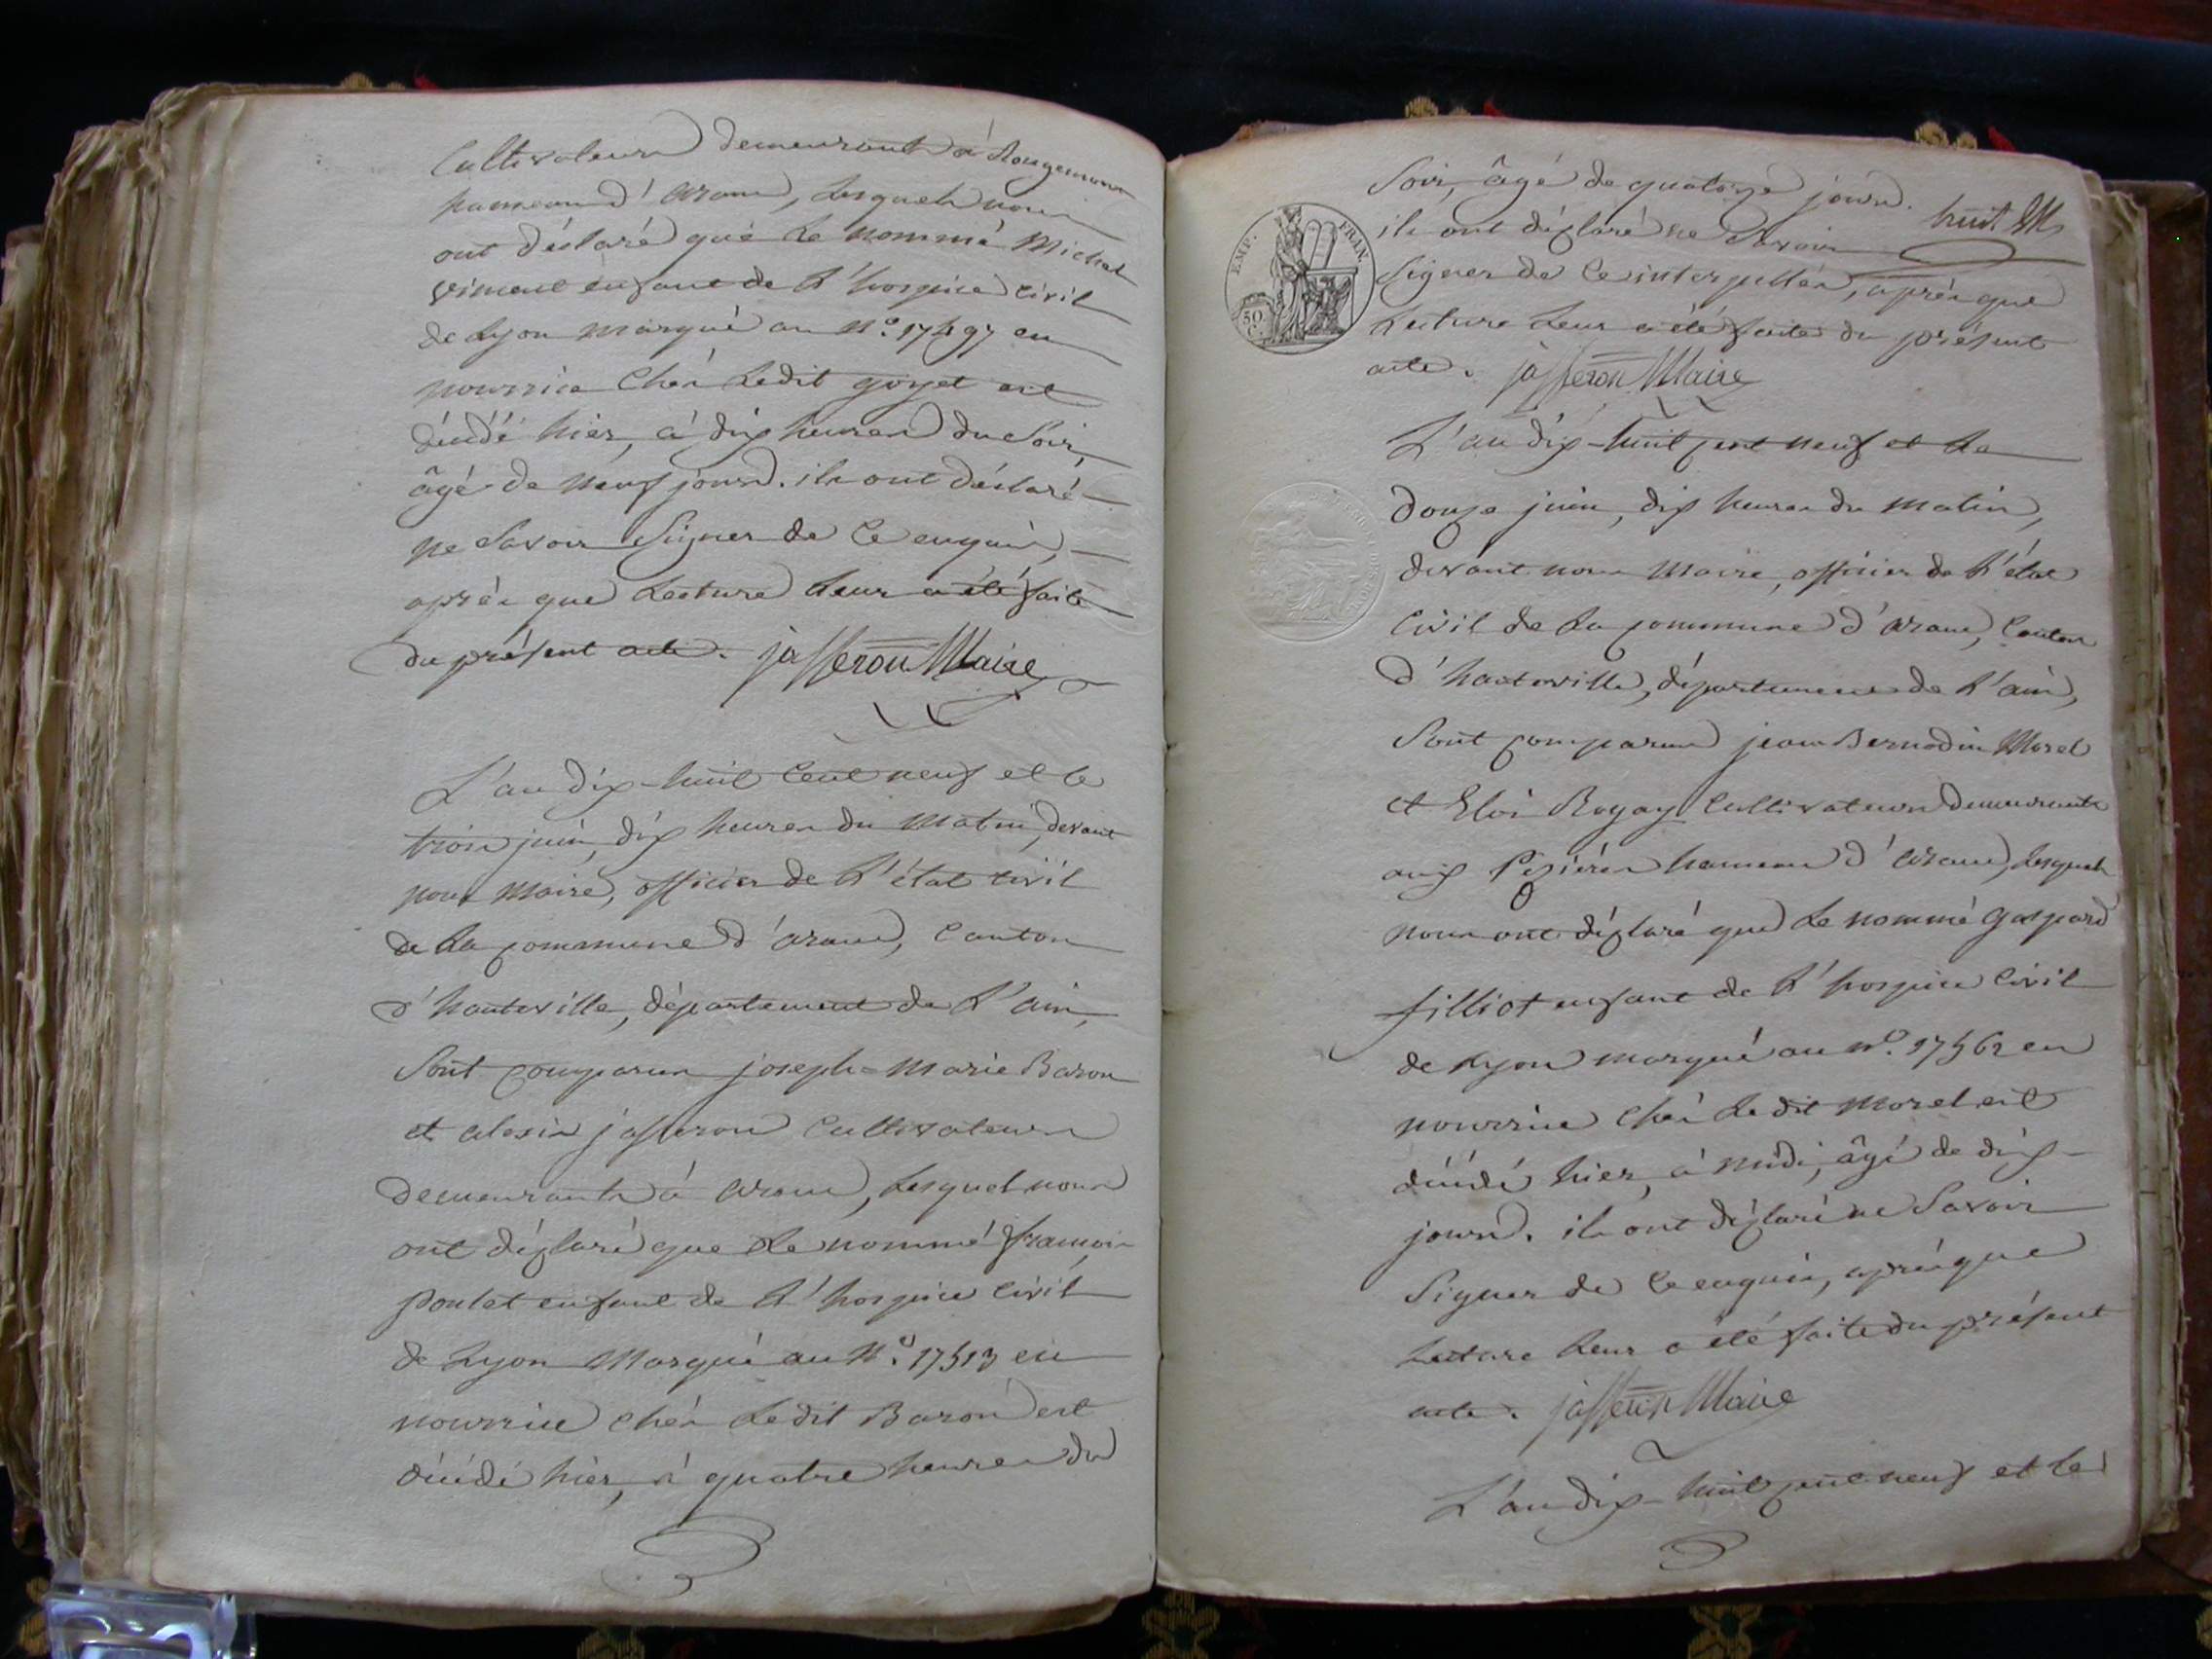 Cultivateurs demeurant à Rougemont
hameau d'aranc, lesquels nous
ont déclaré que le nommé Michel
viment enfant de l'hospice civil
de Lyon marqué au N.º 17497 en
nourrice chés ledit goyet est
décédé hier, à dix heures du soir,
âgé de neuf jours. ils ont déclaré
ne savoir signer de ce enquis,
après que lecture leur a été faite
du présent acte. jasseron Maire
L'an dix-huit cent neuf et le
trois juin, dix heures du matin, devant
nous maire, officier de l'état civil
de la commune d'aranc, canton
d'hauteville, département de l'ain,
sont comparus joseph-marie Baron
et alexis jasseron cultivateurs
demeurants à aranc, lesquels nous
ont déclaré que le nommé françois
poulet enfant de l'hospice civil
de Lyon marqué au N.º 17513 en
nourrice chés ledit Baron est
décédé hier, à quatre heures du
soir, âgé de quatorze jours.
huit
ils ont déclaré ne savoir
signer de ce interpellés, après que
lecture leur a été faite du présent
acte. jasseron Maire
EMP. FRAN.
50 C.
L'an dix-huit cent neuf et le
douze juin, dix heures du matin,
devant nous maire, officier de l'état
civil de la commune d'aranc, canton
d'hauteville, département de l'ain,
sont comparus jean Bernadin Morel
et Eloi Rogay cultivateurs demeurants
aux Pezières hameau d'aranc, lesquels
nous ont déclaré que le nommé gaspard
filliot enfant de l'hospice civil
de Lyon marqué au Nº. 17562 en
nourrice chés ledit Morel est
décédé hier, à midi, âgé de dix
jours. ils ont déclaré ne savoir
signer de ce enquis, après que
lecture leur a été faite du présent
acte. jasseron Maire
L'an dix-huit cent neuf et le